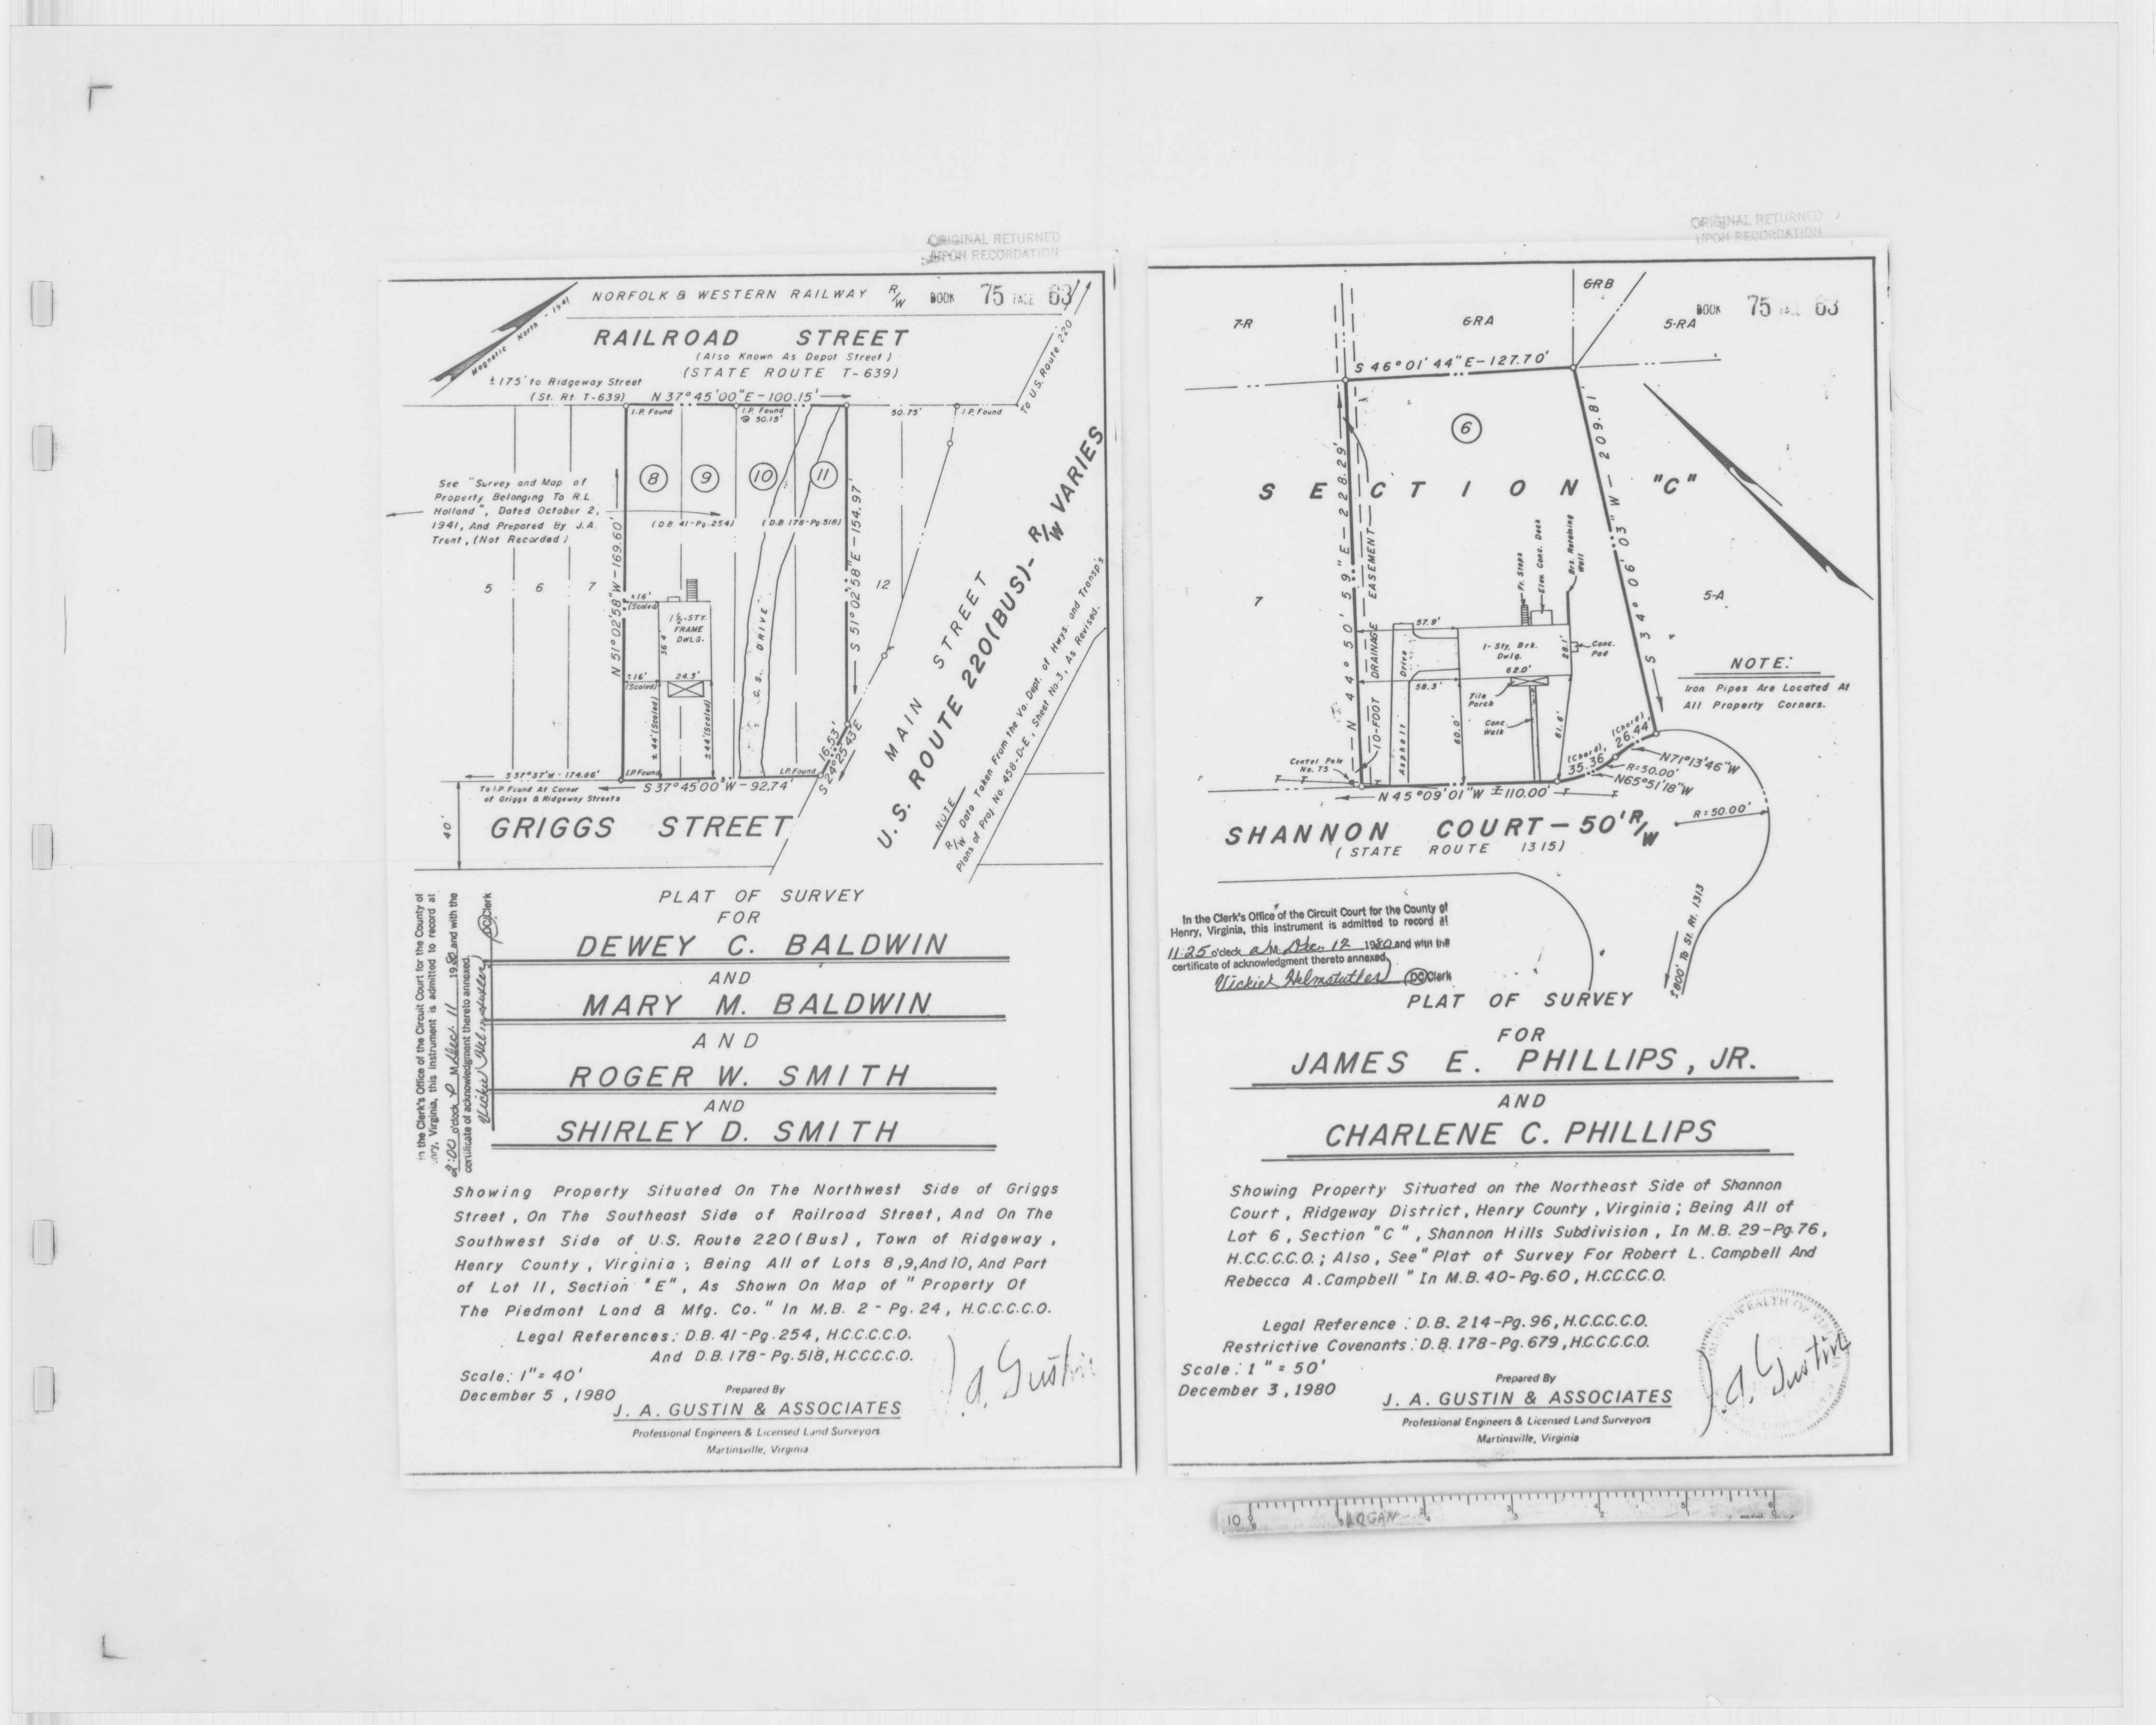 ORIGINAL RETURNED
UPON RECORDATION
NORFOLK & WESTERN RAILWAY R/W
BOOK 75 PAGE 63
Magnetic North - 1941
RAILROAD STREET
(Also Known As Depot Street)
(STATE ROUTE T-639)
±175' to Ridgeway Street
(St. Rt. T-639)
N 37°45'00"E-100.15'
To U.S. Route 220
I.P. Found
I.P. Found
@ 50.15'
50.75'
I.P. Found
8
9
10
11
See "Survey and Map of
Property Belonging To R.L.
Holland", Dated October 2,
1941, And Prepared By J.A.
Trent, (Not Recorded)
(D.B 41-Pg.254)
(D.B 178-Pg.518)
N 51°02'58"W-169.60'
S 51°02'58"E-154.97'
5
6
7
12
±16'
(Scaled)
1½-STY.
FRAME
DWLG.
36.4'
±16'
(Scaled)
24.3'
±44'(Scaled)
±44'(Scaled)
C.S. DRIVE
MAIN STREET
U.S. ROUTE 220(BUS)- R/W VARIES
NOTE
R/W Data Taken From the Va. Dept. of Hwys. and Transp's
Plans of Proj. No. 458-D-E, Sheet No.3, As Revised.
16.53'
S 24°25'43"E
I.P. Found
I.P. Found
S 37°37'W-174.86'
To I.P. Found At Corner
of Griggs & Ridgeway Streets
S 37°45'00"W-92.74'
40'
GRIGGS STREET
In the Clerk's Office of the Circuit Court for the County of
Henry, Virginia, this instrument is admitted to record at
2:00 o'clock P M Dec. 11 1980 and with the
certificate of acknowledgment thereto annexed.
Vickie Helmstutler DC Clerk
PLAT OF SURVEY
FOR
DEWEY C. BALDWIN
AND
MARY M. BALDWIN
AND
ROGER W. SMITH
AND
SHIRLEY D. SMITH
Showing Property Situated On The Northwest Side of Griggs
Street, On The Southeast Side of Railroad Street, And On The
Southwest Side of U.S. Route 220(Bus), Town of Ridgeway,
Henry County, Virginia; Being All of Lots 8,9,And 10, And Part
of Lot 11, Section "E", As Shown On Map of "Property Of
The Piedmont Land & Mfg. Co." In M.B. 2-Pg. 24, H.C.C.C.C.O.
Legal References: D.B. 41-Pg.254, H.C.C.C.C.O.
And D.B. 178-Pg.518, H.C.C.C.C.O.
Scale: 1"=40'
December 5, 1980
Prepared By
J. A. GUSTIN & ASSOCIATES
Professional Engineers & Licensed Land Surveyors
Martinsville, Virginia
J. A. Gustin
ORIGINAL RETURNED
UPON RECORDATION
BOOK 75 PAGE 63
7-R
6-RA
6-RB
5-RA
S 46°01'44"E-127.70'
6
SECTION "C"
N 44°50'59"E-228.29'
S 34°06'03"W-209.81'
10-FOOT DRAINAGE EASEMENT
7
5-A
Fr. Steps
Elev. Conc. Deck
Brk. Retaining
Wall
57.9'
1-Sty. Brk.
Dwlg.
28.1'
Conc.
Pad
62.0'
58.3'
Asphalt Drive
Tile
Porch
Conc.
Walk
60.0'
61.6'
NOTE:
Iron Pipes Are Located At
All Property Corners.
Centel Pole
No. T5
(Chord)
26.44'
(Chord)
35.36'
N71°13'46"W
R=50.00'
N65°51'18"W
N 45°09'01"W ±110.00'
R=50.00'
SHANNON COURT-50' R/W
(STATE ROUTE 1315)
±800' To St. Rt. 1313
In the Clerk's Office of the Circuit Court for the County of
Henry, Virginia, this instrument is admitted to record at
11:25 o'clock a.M. Dec. 12 1980 and with the
certificate of acknowledgment thereto annexed.
Vickie Helmstutler DC Clerk
PLAT OF SURVEY
FOR
JAMES E. PHILLIPS, JR.
AND
CHARLENE C. PHILLIPS
Showing Property Situated on the Northeast Side of Shannon
Court, Ridgeway District, Henry County, Virginia; Being All of
Lot 6, Section "C", Shannon Hills Subdivision, In M.B. 29-Pg.76,
H.C.C.C.C.O.; Also, See "Plat of Survey For Robert L. Campbell And
Rebecca A. Campbell" In M.B. 40-Pg.60, H.C.C.C.C.O.
Legal Reference: D.B. 214-Pg.96, H.C.C.C.C.O.
Restrictive Covenants: D.B. 178-Pg.679, H.C.C.C.C.O.
Scale: 1"=50'
December 3, 1980
Prepared By
J. A. GUSTIN & ASSOCIATES
Professional Engineers & Licensed Land Surveyors
Martinsville, Virginia
J. A. Gustin
10
LOGAN